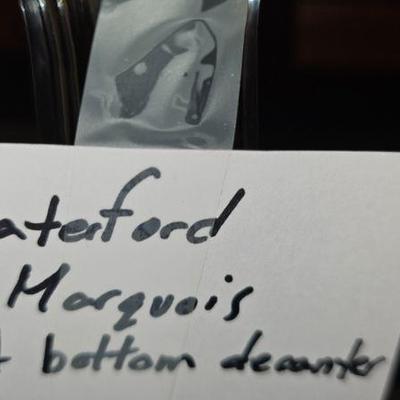 aterford
Marquois
t bottom decanter